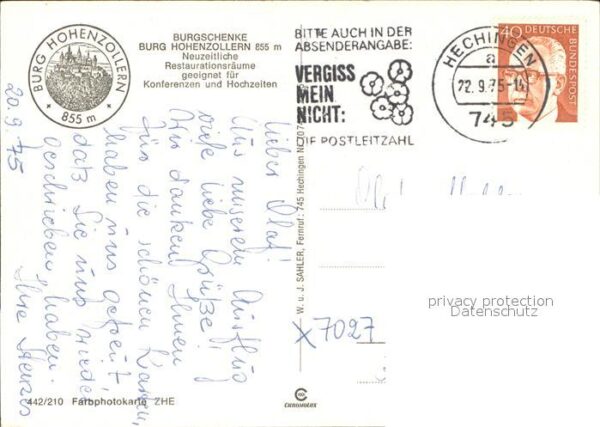 BURG HOHENZOLLERN
855 m
BURGSCHENKE
BURG HOHENZOLLERN 855 m
Neuzeitliche
Restaurationsräume
geeignet für
Konferenzen und Hochzeiten
BITTE AUCH IN DER
ABSENDERANGABE:
VERGISS
MEIN
NICHT:
DIE POSTLEITZAHL
HECHINGEN
a
22.9.75-14
745
40
DEUTSCHE
BUNDESPOST
20.9.75
Lieber Olaf!
Aus unserem Ausflug
viele liebe Grüße!
Wir danken Ihnen
für die schönen Karten,
haben uns gefreut,
daß Sie uns wieder
geschrieben haben.
Ihre
W. u. J. SAHLER, Fernruf: 745 Hechingen
x7027
privacy protection
Datenschutz
442/210 Farbphotokarte ZHE
CEKUMULUX